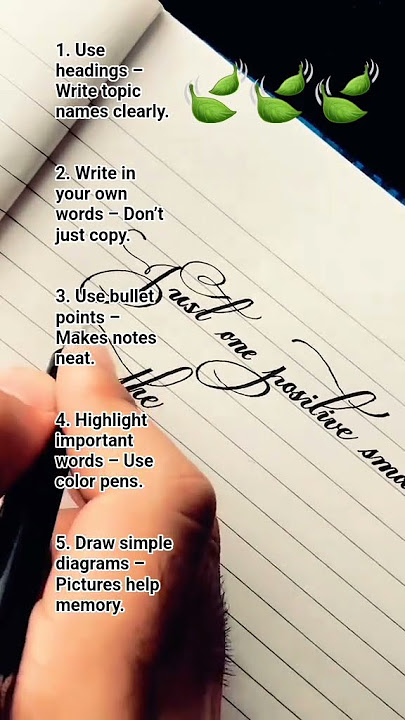 1. Use
headings –
Write topic
names clearly.
2. Write in
your own
words – Don't
just copy.
3. Use bullet
points –
Makes notes
neat.
4. Highlight
important
words – Use
color pens.
5. Draw simple
diagrams –
Pictures help
memory.
Just one positive
the